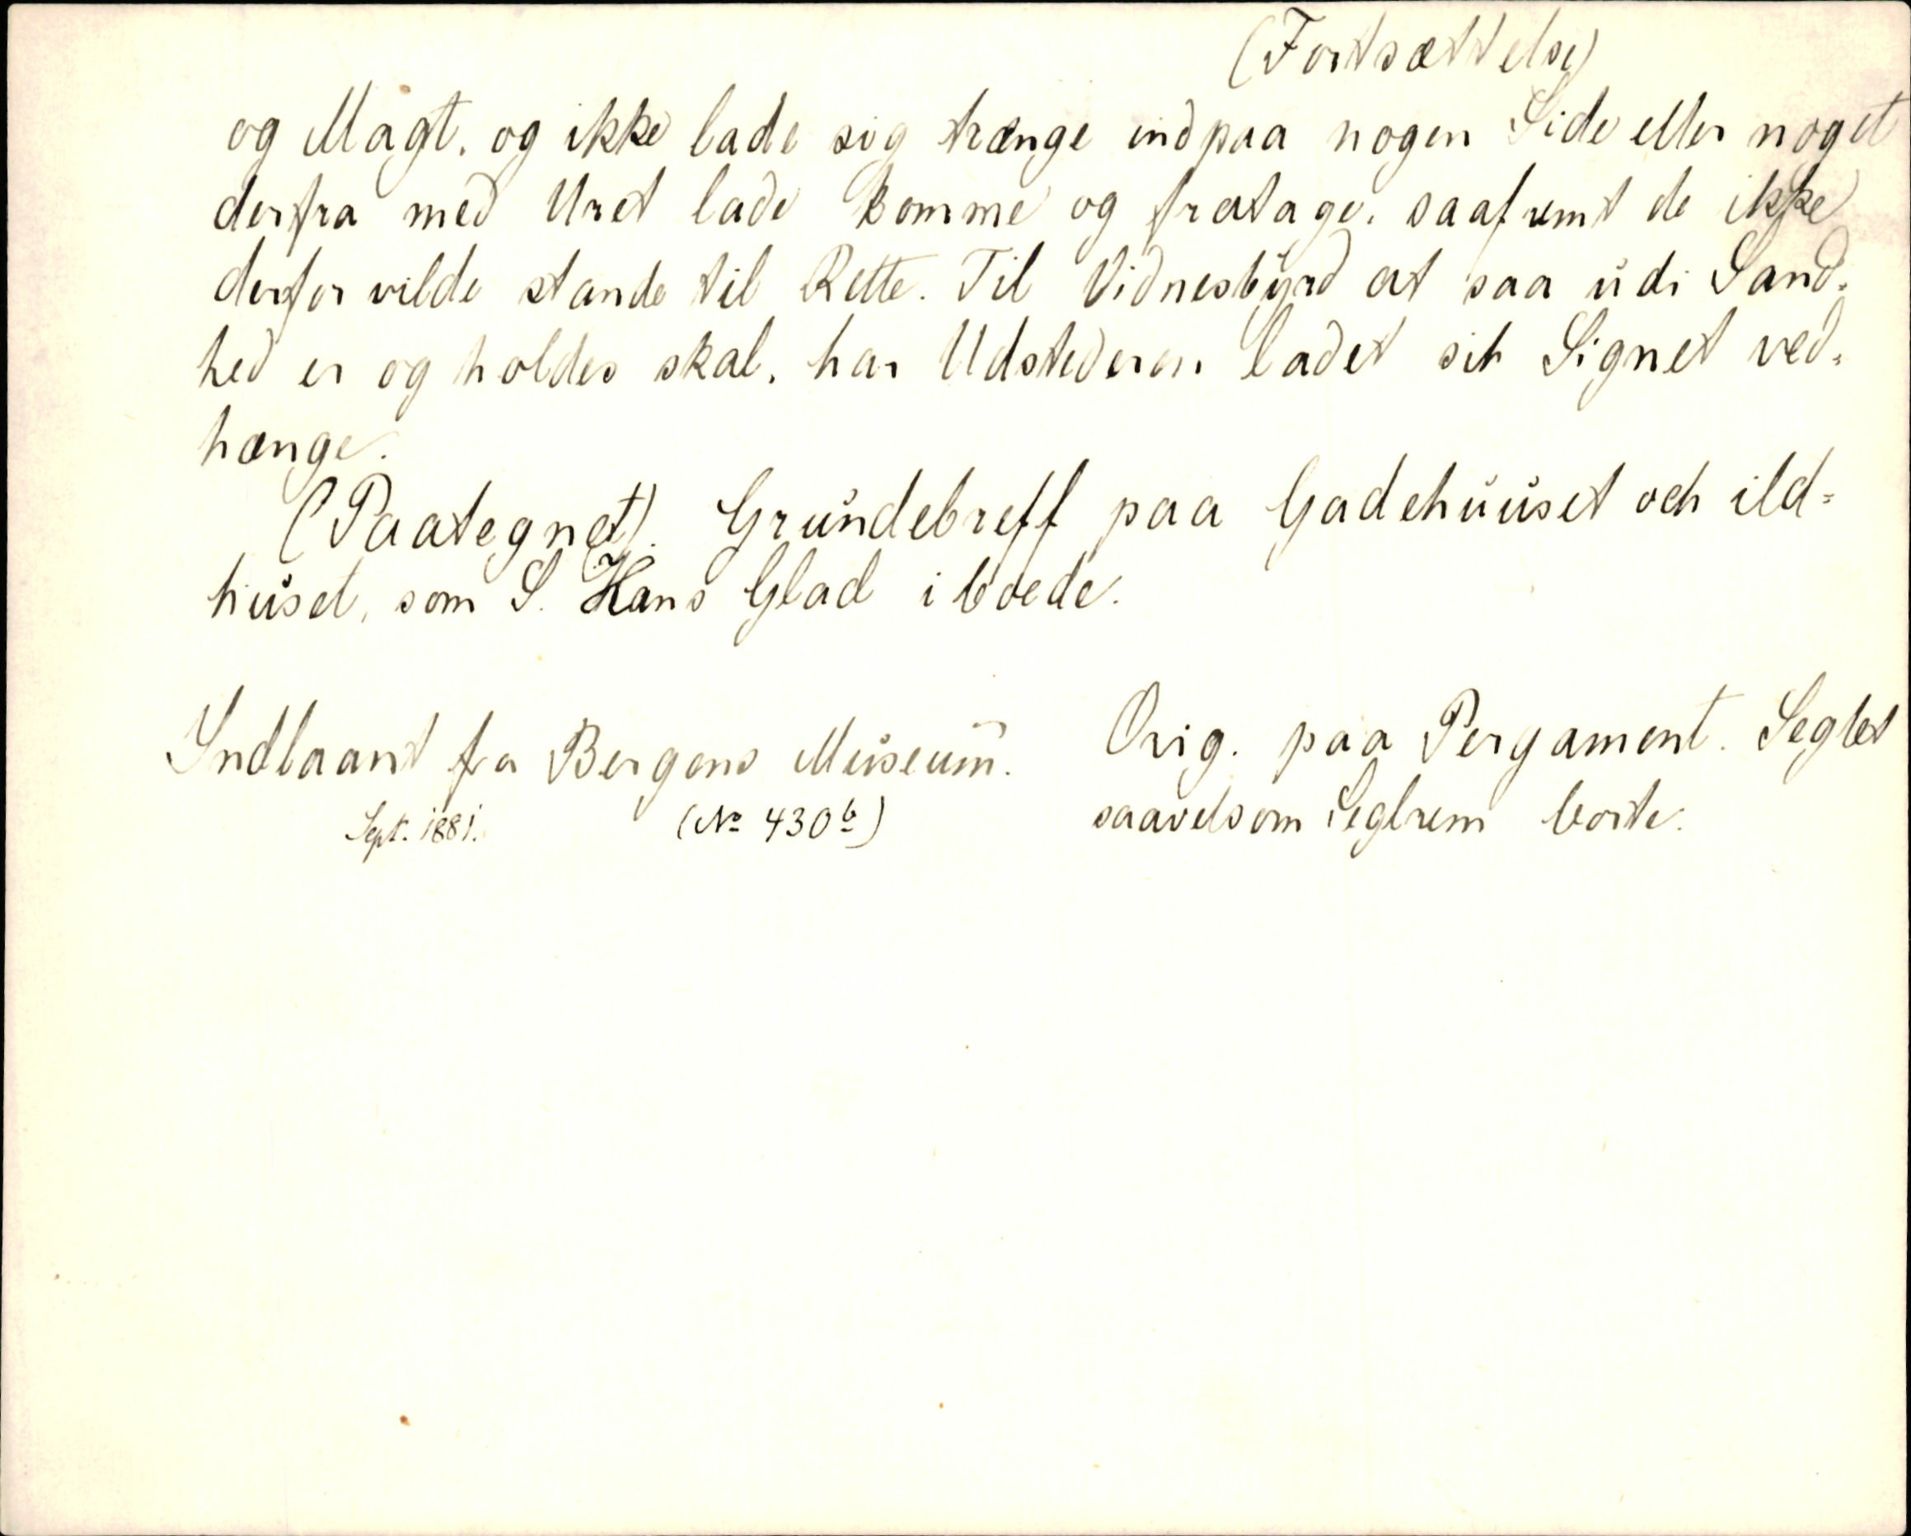 (Fortsættelse)
og Magt, og ikke lade sig trænge indpaa nogen Side eller noget
derfra med Uret lade komme og fratage, saafremt de ikke
derfor vilde stande til Rette. Til Vidnesbyrd at saa udi Sand-
hed er og holdes skal, har Udstederen ladet sit Signet ved-
hænge.
(Paategnet). Grundebreff paa Gadehuuset och ild-
huset, som S. Hans Glad iboede.
Indlaant fra Bergens Museum.
Sept. 1881. (No 430b)
Orig. paa Pergament. Seglet
saavelsom Seglrem borte.